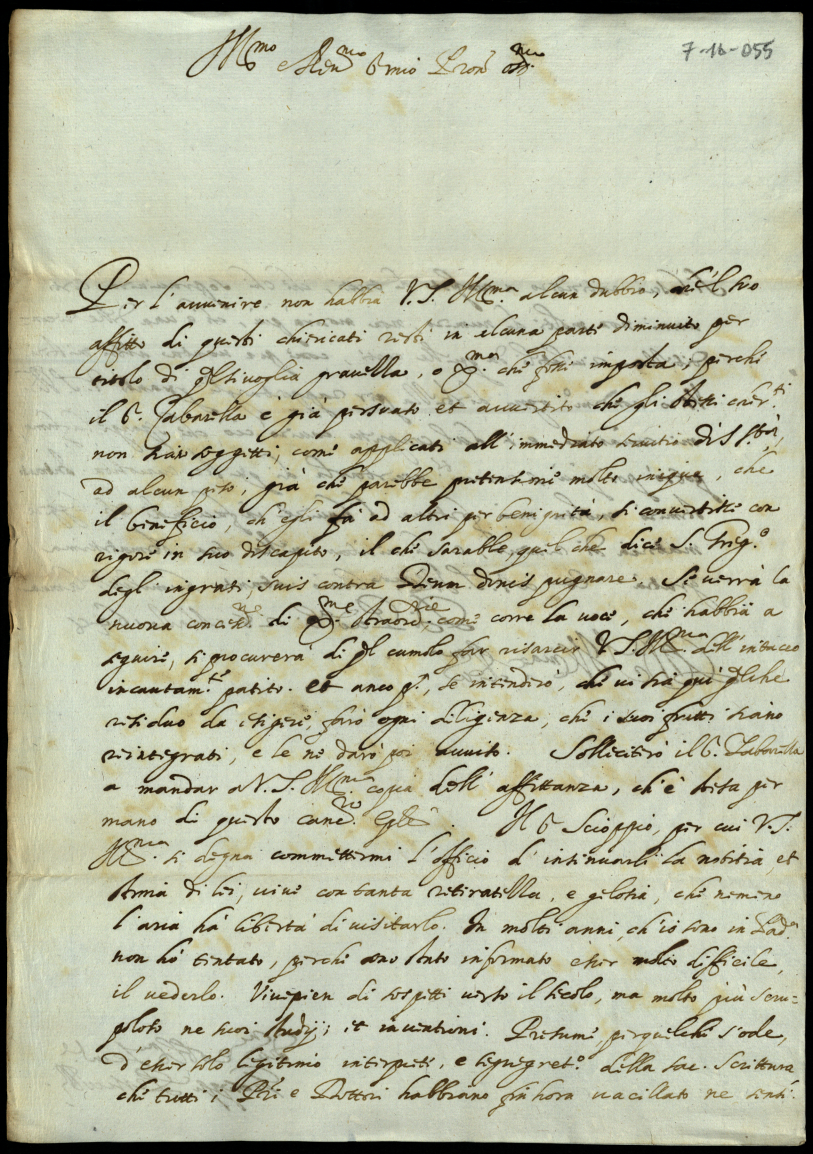 7-16-055
Ill.mo e Rev.mo S. mio Pron Oss.mo
Per l'auuenire non habbia V.S. Ill.ma alcun dubbio, che'l suo
affitto di questi chiericati resti in alcuna parte diminuito per
titolo di qlsiuoglia grauezza, o che fosse imposta, perche
il S. Zabarella è già persuaso et auuertito che gli
non sian soggetti, come applicati all'immediato seruitio di S.
ad alcun peso, già che parebbe pretensione molto iniqua, che
il beneficio, ch'egli fà ad altri per benignità, si conuertisse con
rigore in suo discapito, il che sarebbe, quel che dice S. Greg.o
degli ingrati, suis contra Deum donis pugnare. Se uerrà la
nuoua di straord.rie come corre la uoce, che habbia a
seguire, si procurerà di ql cumolo far risarcir V.S. Ill.ma dell'intacco
incautam.te patito. et anco se intenderò, che ui sia quì qlche
residuo da esigere, farò ogni diligenza, che i suoi frutti siano
reintegrati, e le ne darò poi auuiso. Solleciterò il S. Zabarella
a mandar a V.S. Ill.ma copia dell'affittanza, ch'è stesa per
mano di questo canc.ro
Il S. Scioppio, per cui V.S.
Ill.ma si degna commettermi l'officio d'intinuarli la notitia, et
stima di lei, uiue con tanta ritiratezza, e gelosia, che nemeno
l'aria hà libertà di uisitarlo. In molti anni, ch'io sono in Pad.a
non hò tentato, perche sono stato informato esser molto difficile,
il uederlo. Viue pien di sospetti uerso il secolo, ma molto più scru-
poloso ne suoi studij, et inuentioni. Presume, per quel che s'ode,
d'esser solo legitimo interprete, e della sac. Scrittura
che tutti i Pri e Dottori habbiano fin hora uacillato ne sensi.